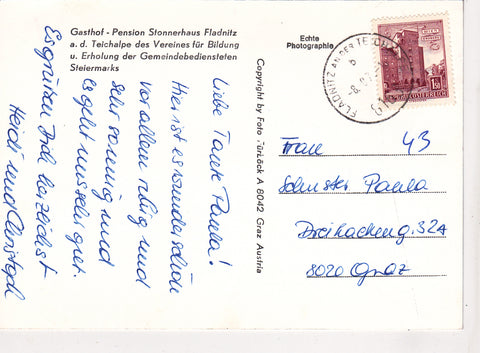 Gasthof - Pension Stonnerhaus Fladnitz
a. d. Teichalpe des Vereines für Bildung
u. Erholung der Gemeindebediensteten
Steiermarks
Echte
Photographie
Copyright by Foto Jurlöck A 8042 Graz Austria
FLADNITZ AN DER TEICHALPE
REPUBLIK ÖSTERREICH
Liebe Tante Paula!
Hier ist es wunderschön
vor allem ruhig und
sehr sonnig und
es geht uns sehr gut.
Es grüßen Dich herzlichst
Heidi und Christoph
Frau 43
Schuster Paula
32A
8020 Graz